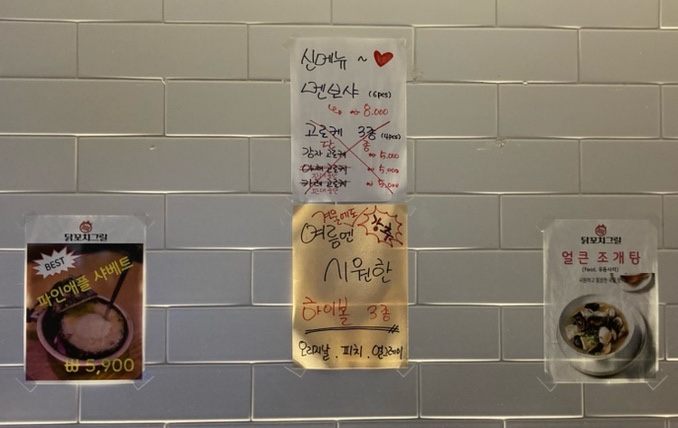 신메뉴 ~
멘보샤 (6pcs)
₩ 8.000
고로케 3종 (4pcs)
감자 고로케 ₩ 5.000
야채 고로케 ₩ 5.000
카레 고로케 ₩ 5.000
겨울에도
여름엔
시원한
하이볼 3종
오리지날 . 피치 . 얼그레이
닭꼬치그릴
BEST
파인애플 샤베트
₩ 5,900
닭꼬치그릴
얼큰 조개탕
(feat. 우동사리)